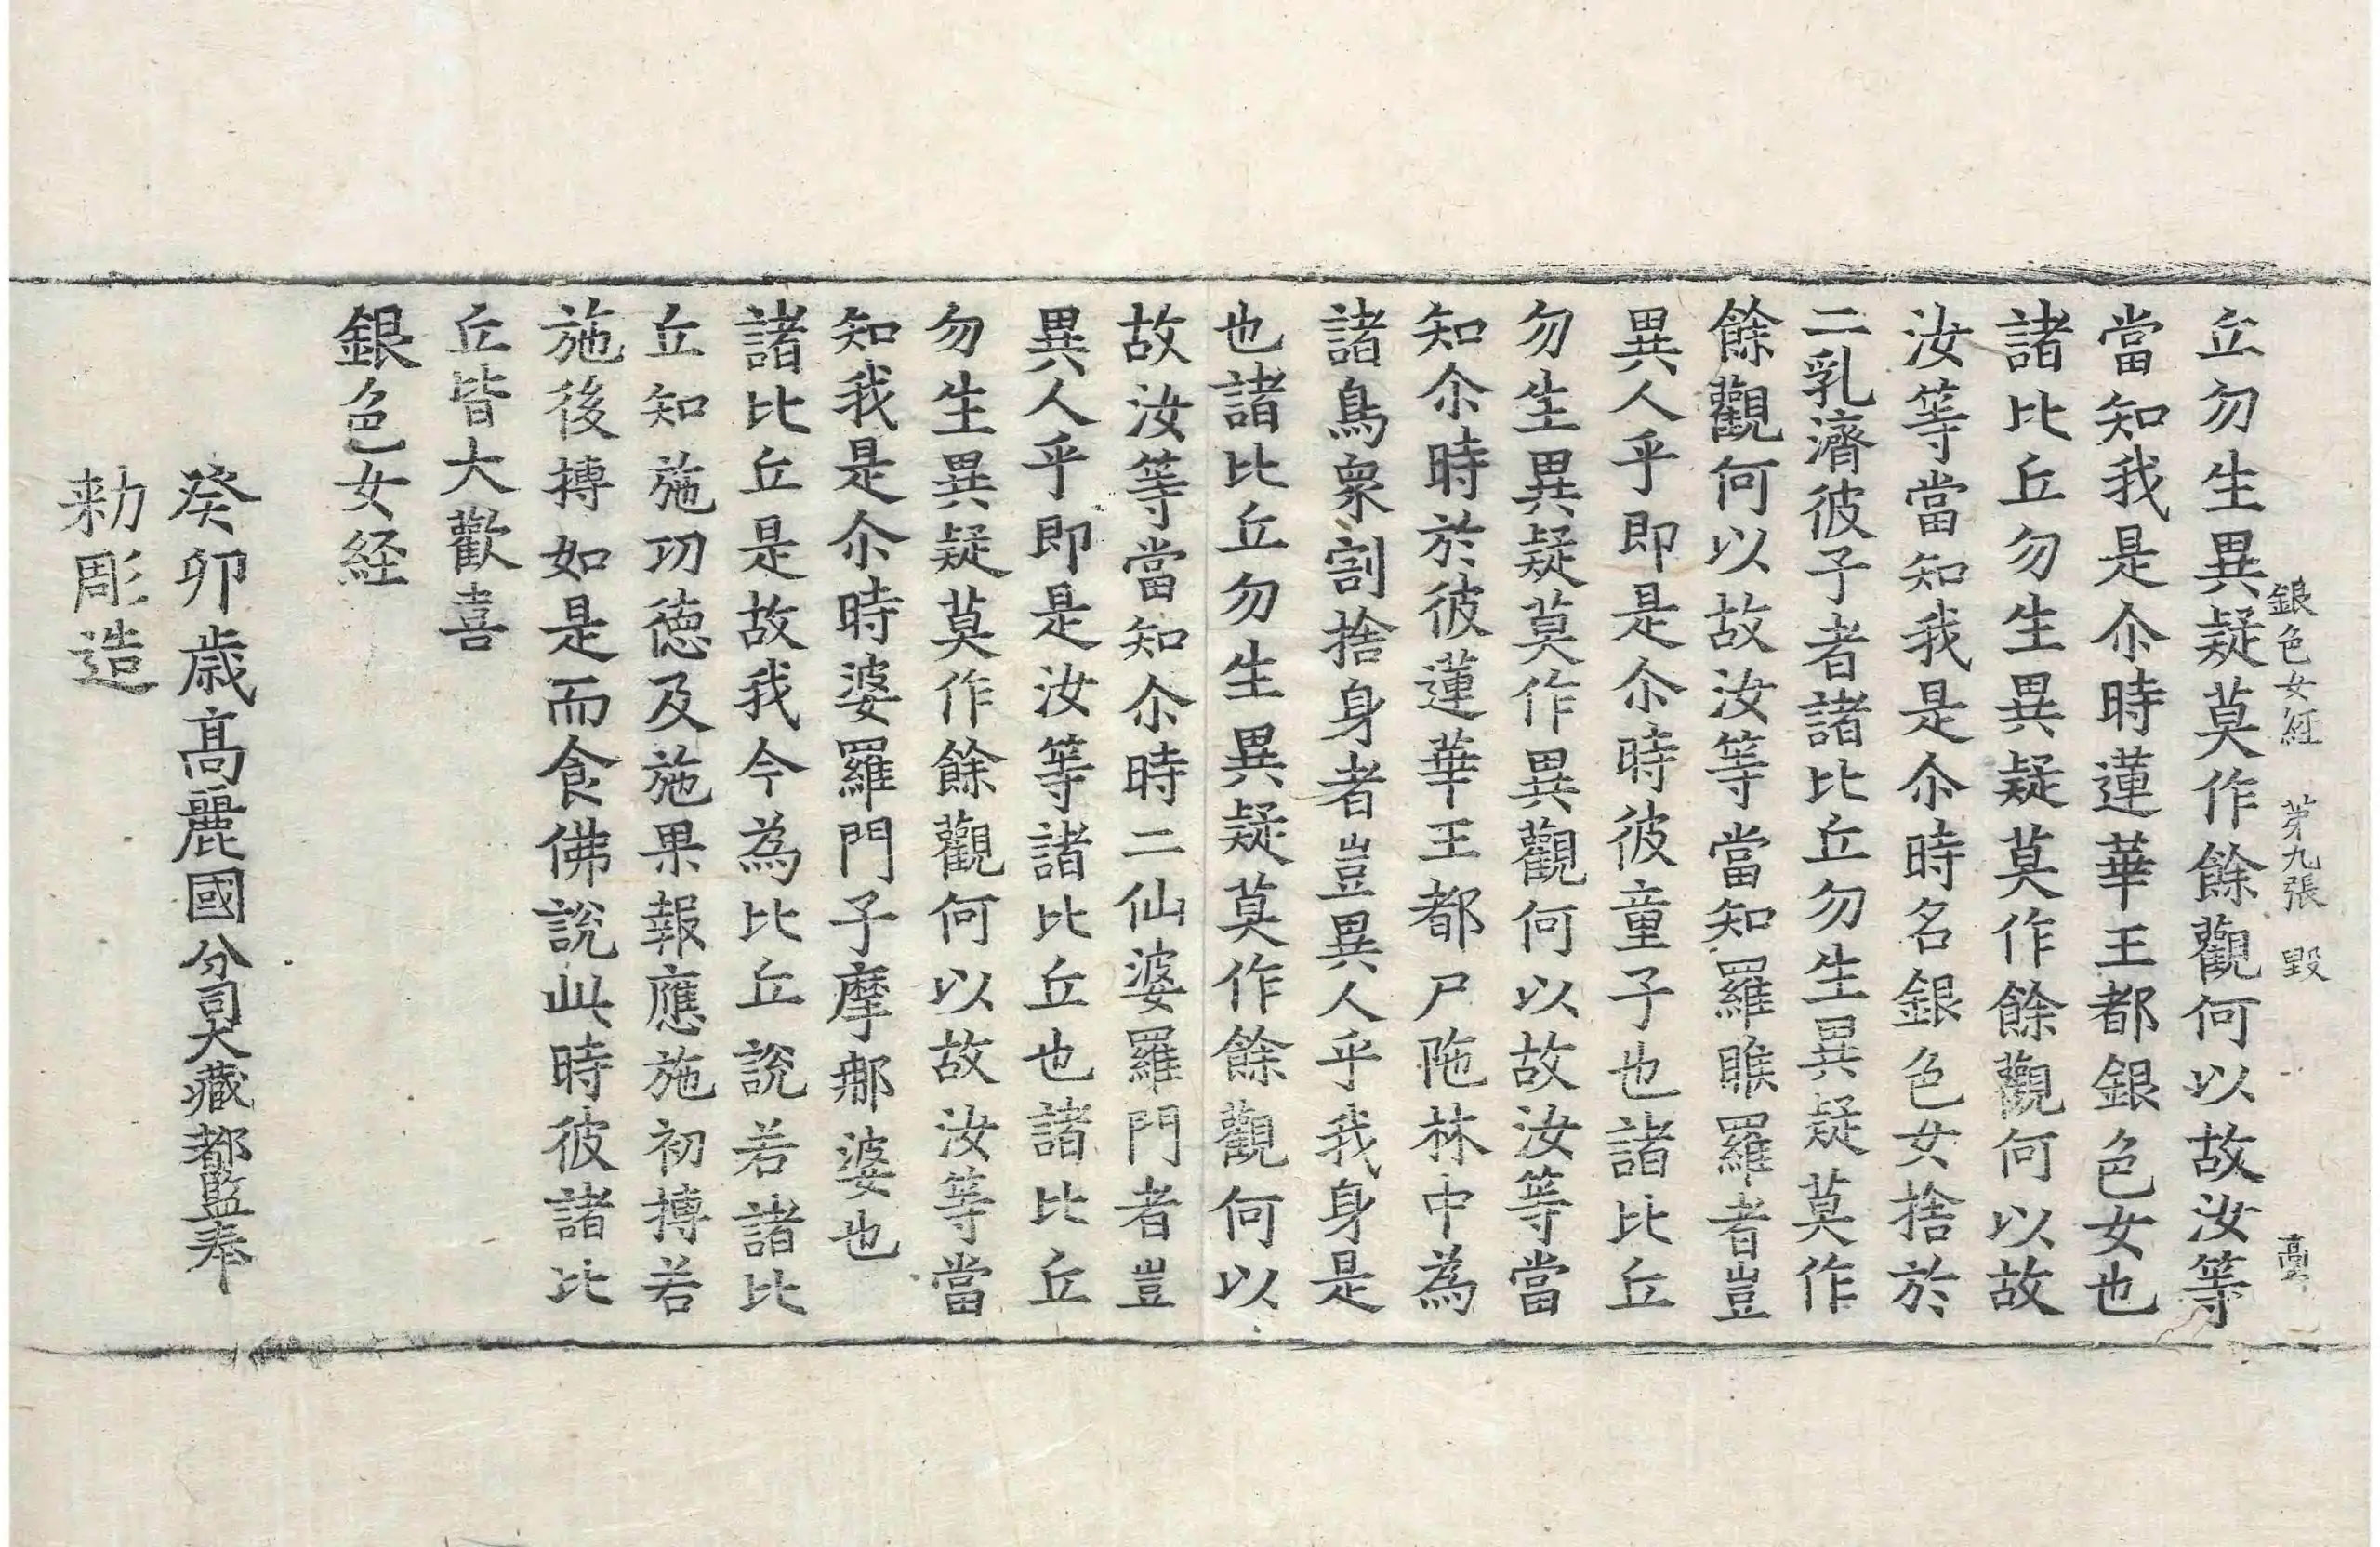 銀色女経　第九張　毀
丘勿生異疑莫作餘觀何以故汝等
當知我是尒時蓮華王都銀色女也
諸比丘勿生異疑莫作餘觀何以故
汝等當知我是尒時名銀色女捨於
二乳濟彼子者諸比丘勿生異疑莫作
餘觀何以故汝等當知羅睺羅者豈
異人乎即是尒時彼童子也諸比丘
勿生異疑莫作異觀何以故汝等當
知尒時於彼蓮華王都尸陁林中為
諸鳥衆割捨身者豈異人乎我身是
也諸比丘勿生異疑莫作餘觀何以
故汝等當知尒時二仙婆羅門者豈
異人乎即是汝等諸比丘也諸比丘
勿生異疑莫作餘觀何以故汝等當
知我是尒時婆羅門子摩那婆也
諸比丘是故我今為比丘說若諸比
丘知施功德及施果報應施初摶若
施後摶如是而食佛說此時彼諸比
丘皆大歡喜
銀色女経
癸卯歳髙麗國分司大藏都監奉
勑彫造